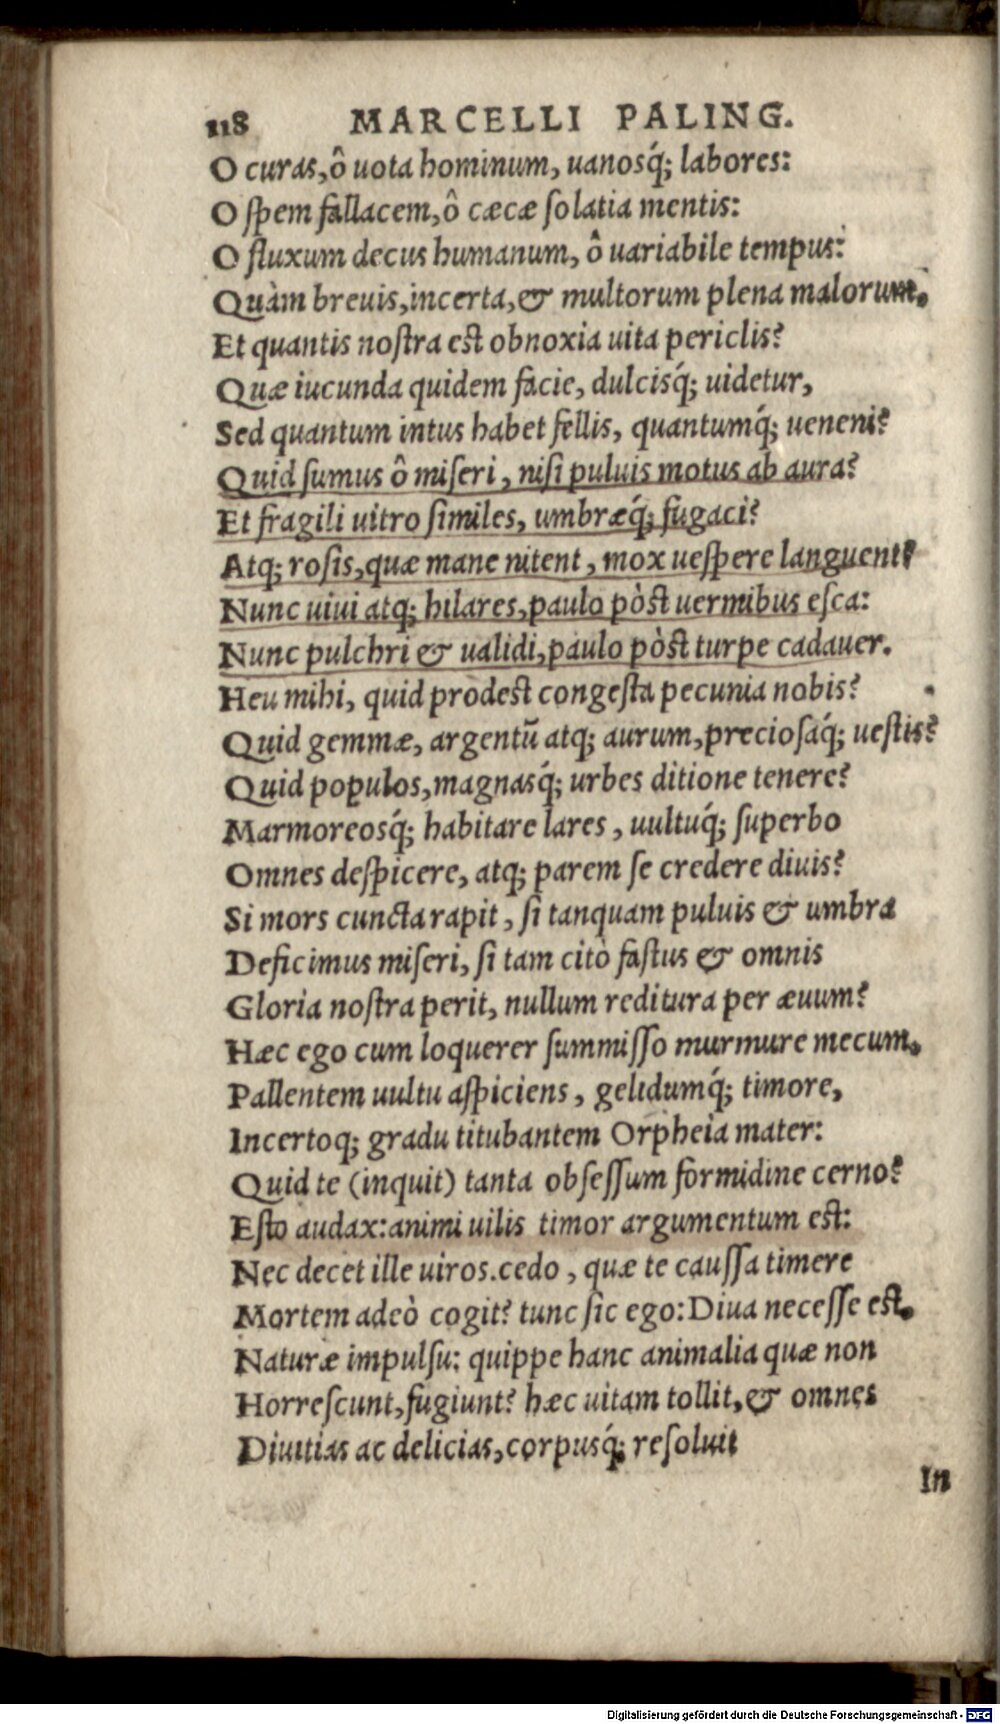 118 MARCELLI PALING.
O curas, ô uota hominum, uanosq́; labores:
O ſpem fallacem, ô cæcæ ſolatia mentis:
O fluxum decus humanum, ô uariabile tempus:
Quàm breuis, incerta, & multorum plena malorum.
Et quantis noſtra est obnoxia uita periclis?
Quæ iucunda quidem facie, dulcisq́; uidetur,
Sed quantum intus habet fellis, quantumq́; ueneni?
Quid ſumus ô miſeri, niſi puluis motus ab aura?
Et fragili uitro ſimiles, umbræq́; fugaci?
Atq; roſis, quæ mane nitent, mox ueſpere languent?
Nunc uiui atq; hilares, paulo pòst uermibus eſca:
Nunc pulchri & ualidi, paulo pòst turpe cadauer.
Heu mihi, quid prodest congeſta pecunia nobis?
Quid gemmæ, argentū atq; aurum, precioſaq́; ueſtis?
Quid populos, magnasq́; urbes ditione tenere?
Marmoreosq́; habitare lares, uultuq́; ſuperbo
Omnes deſpicere, atq; parem ſe credere diuis?
Si mors cuncta rapit, ſi tanquam puluis & umbra
Deficimus miſeri, ſi tam citò faſtus & omnis
Gloria noſtra perit, nullum reditura per æuum?
Hæc ego cum loquerer ſummiſſo murmure mecum,
Pallentem uultu aſpiciens, gelidumq́; timore,
Incertoq; gradu titubantem Orpheia mater:
Quid te (inquit) tanta obſeſſum formidine cerno?
Eſto audax: animi uilis timor argumentum est:
Nec decet ille uiros. cedo, quæ te cauſſa timere
Mortem adeò cogit? tunc ſic ego: Diua neceſſe est.
Naturæ impulſu: quippe hanc animalia quæ non
Horreſcunt, fugiunt? hæc uitam tollit, & omnes
Diuitias ac delicias, corpusq́; reſoluit
In
Digitalisierung gefördert durch die Deutsche Forschungsgemeinschaft - DFG